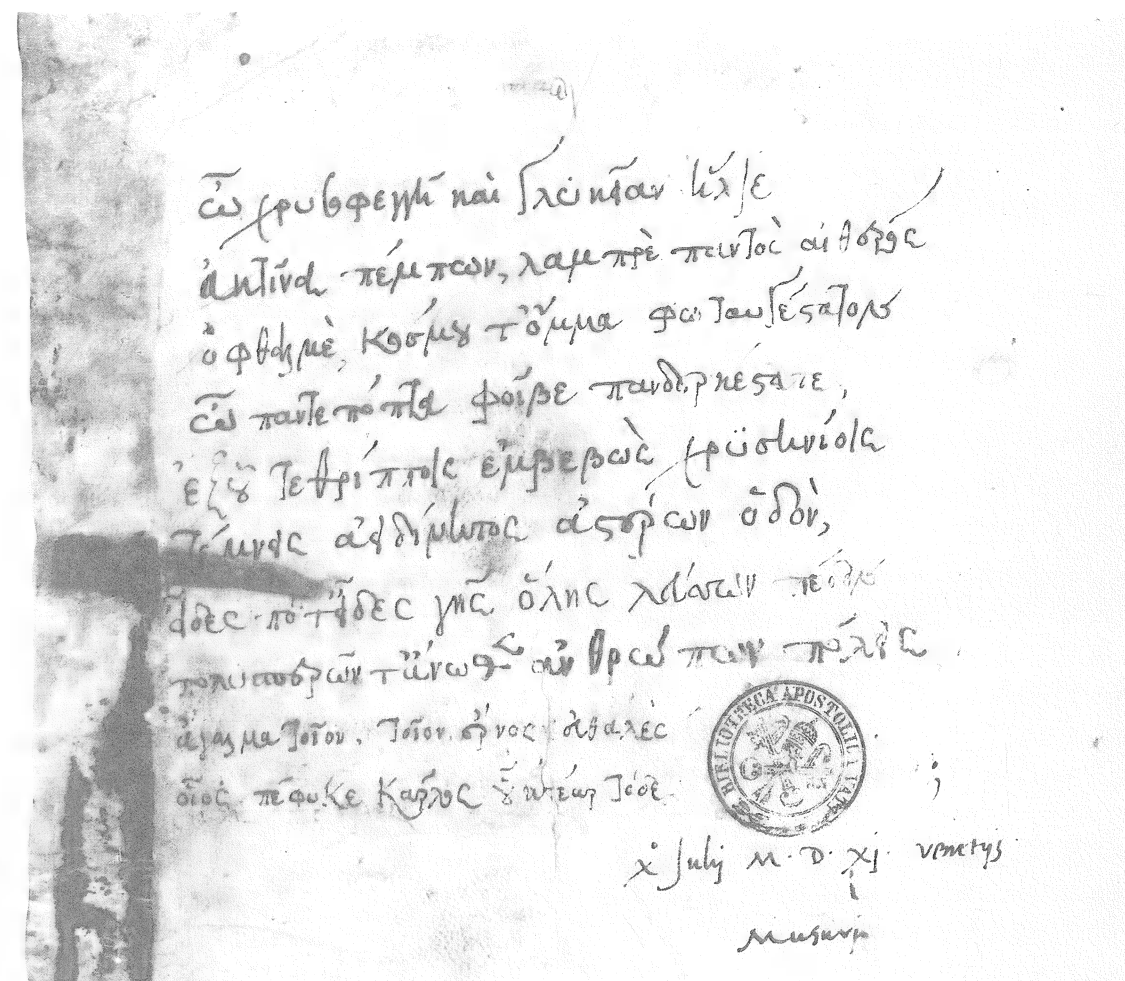 ὦ χρυσοφεγγῆ καὶ γλυκεῖαν ἥλιε
ἀκτῖνα πέμπων, λαμπρὲ παντὸς αἰθέρος
ὀφθαλμὲ, κόσμου τ' ὄμμα φωταυγέστατον
ὦ παντεπόπτα φοῖβε πανδερκέστατε,
ἐξ οὗ τεθρίπποις ἐμβεβὼς χρυσηνίοις
τέμνεις ἀειδίνητος ἀστέρων ὁδὸν,
εἶδες ποτ' εἶδες γῆς ὅλης
τἄνωθεν ἀνθρώπων πόλεις
ἄγαλμα τοῖον, τοῖον ἔρνος ἀιθαλὲς
οἷος πέφυκε Κάρλος οὗ κτέαρ τόδε
;
BIBLIOTHECA APOSTOLICA VATICANA
x Julij M. D. xj. venetijs